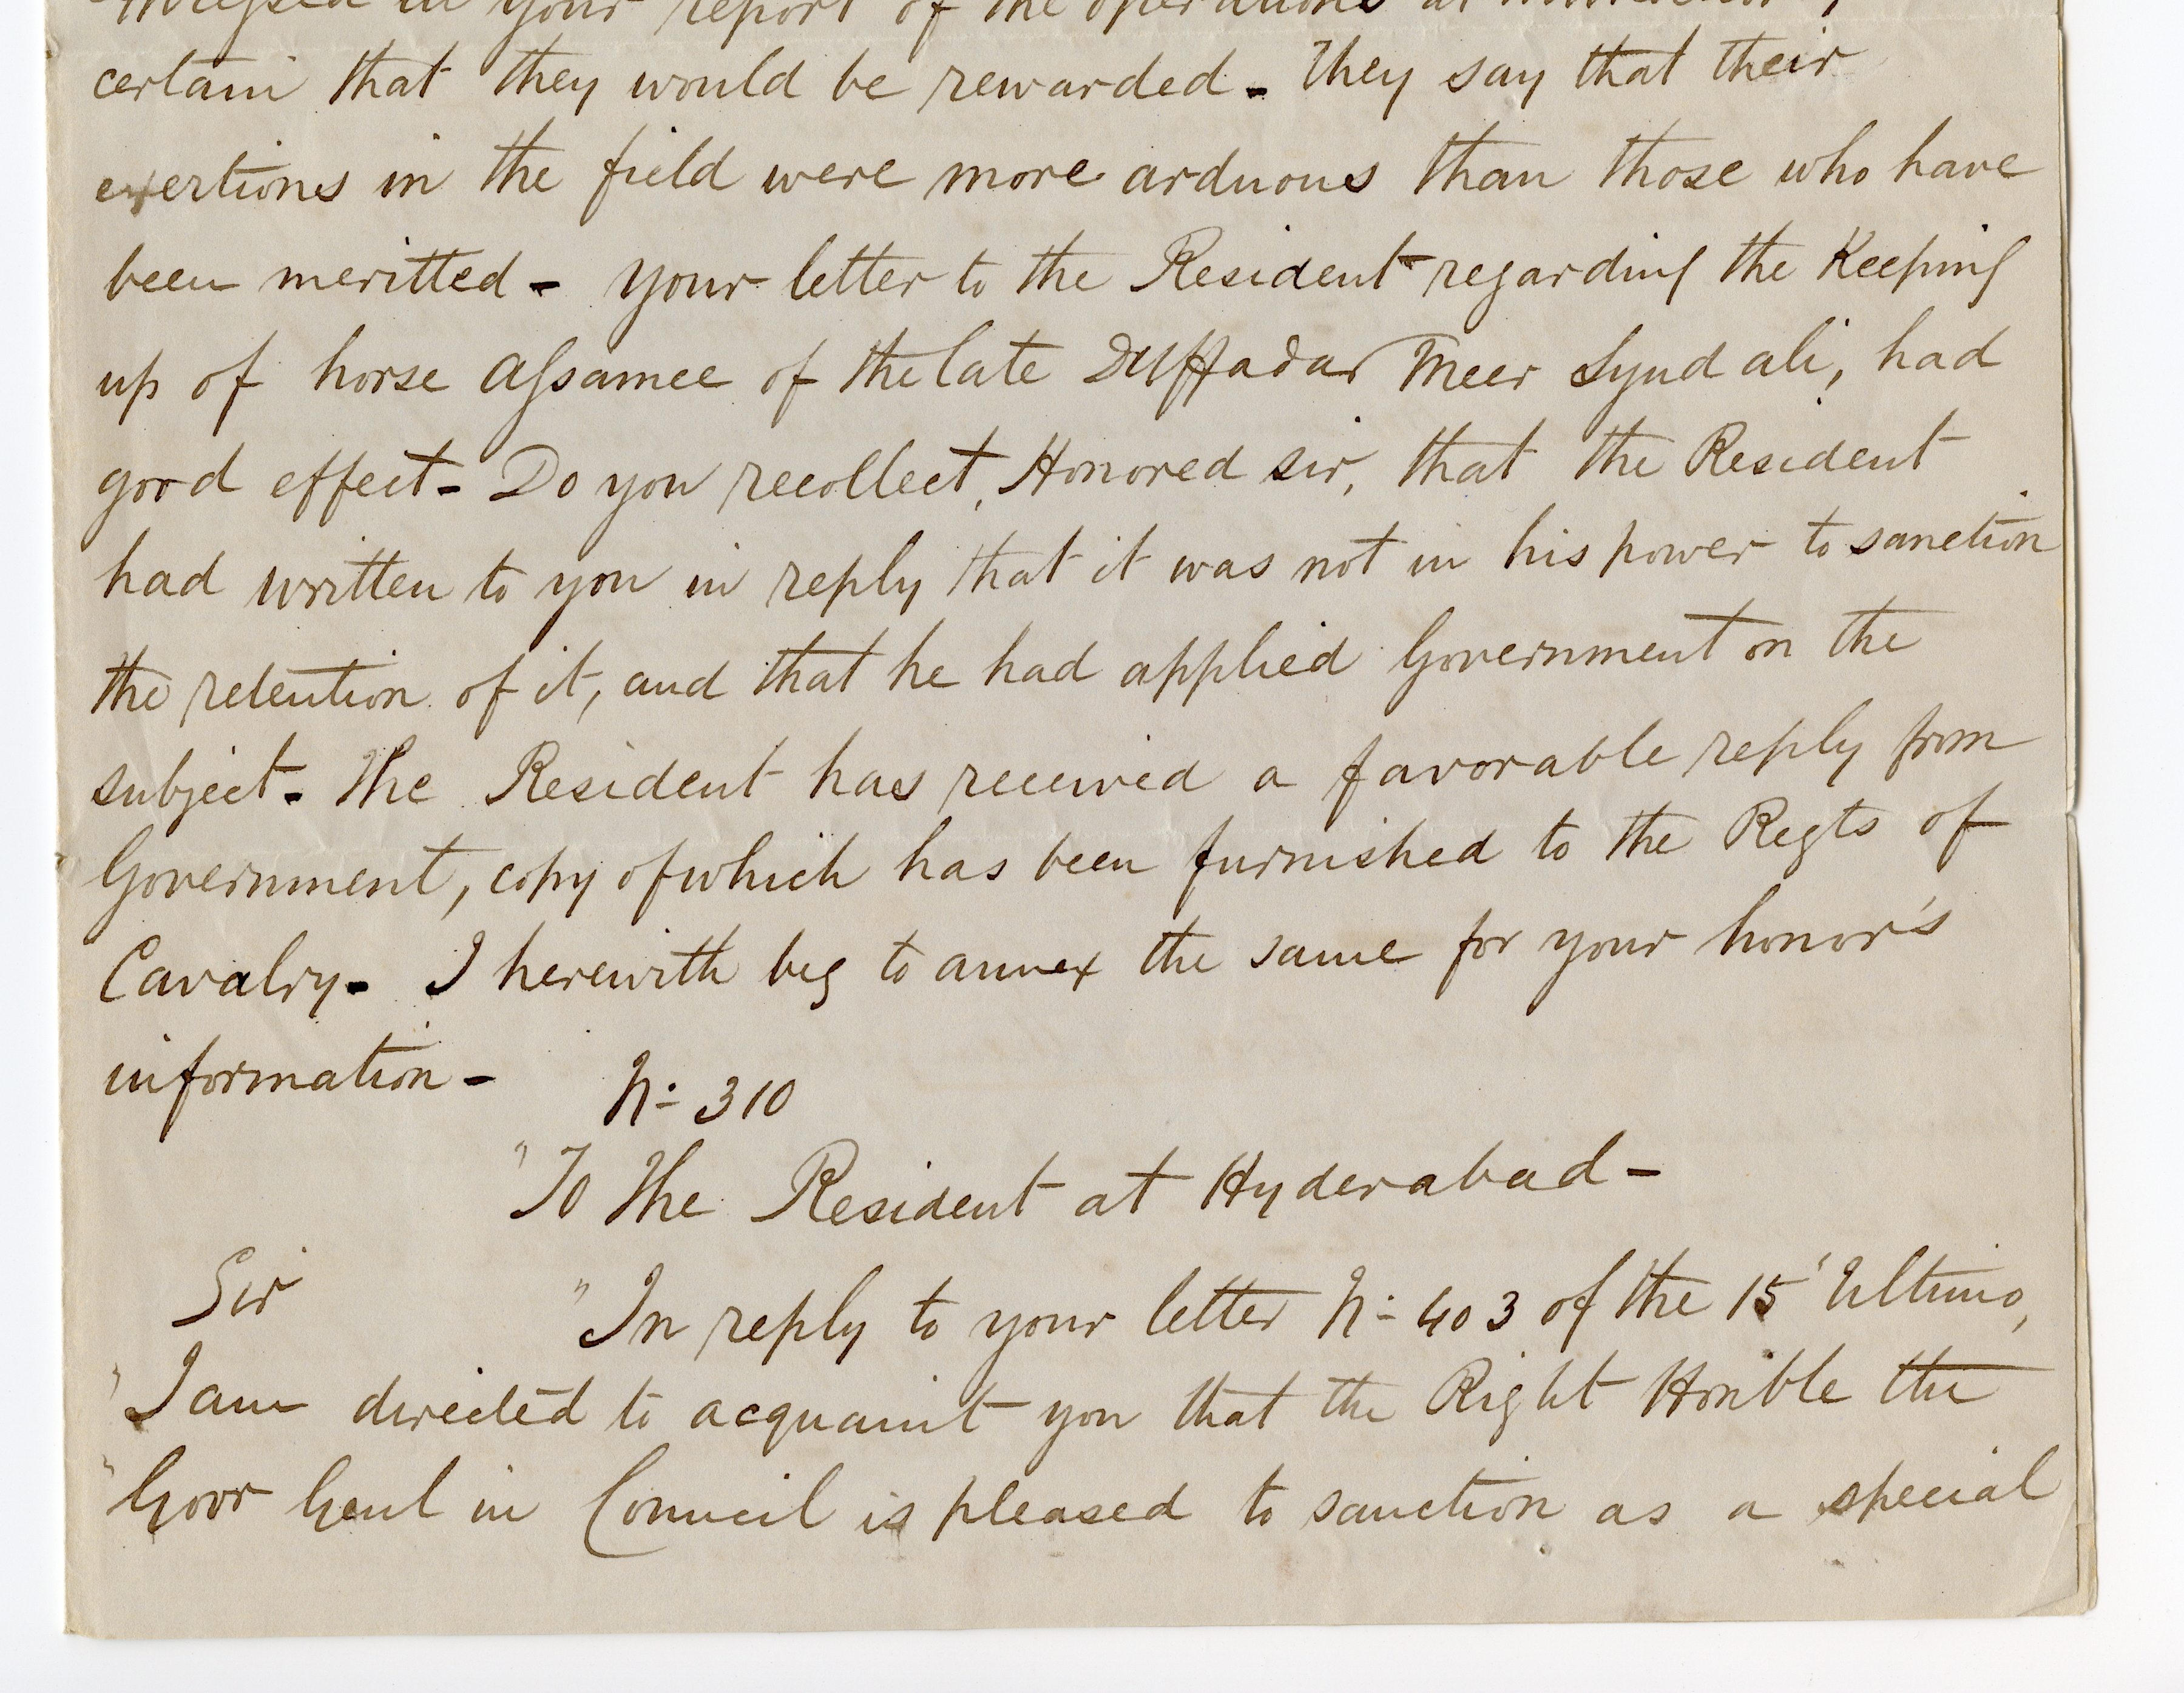 in your report of the operations at
certain that they would be rewarded - They say that their
exertions in the field were more arduous than those who have
been meritted - your letter to the Resident regarding the Keeping
up of horse Assamee of the late Duffadar Meer Synd ali, had
good effect - Do you recollect, Honored sir, that the Resident
had written to you in reply that it was not in his power to sanction
the retention of it, and that he had applied Government on the
subject - The Resident has received a favorable reply from
Government, copy of which has been furnished to the Regts of
Cavalry - I herewith beg to annex the same for your honor's
information -
No 310
"To The Resident at Hyderabad -
Sir
"In reply to your letter No 403 of the 15' Ultimo,
"I am directed to acquaint you that the Right Honble the
"Govr Genl in Council is pleased to sanction as a special